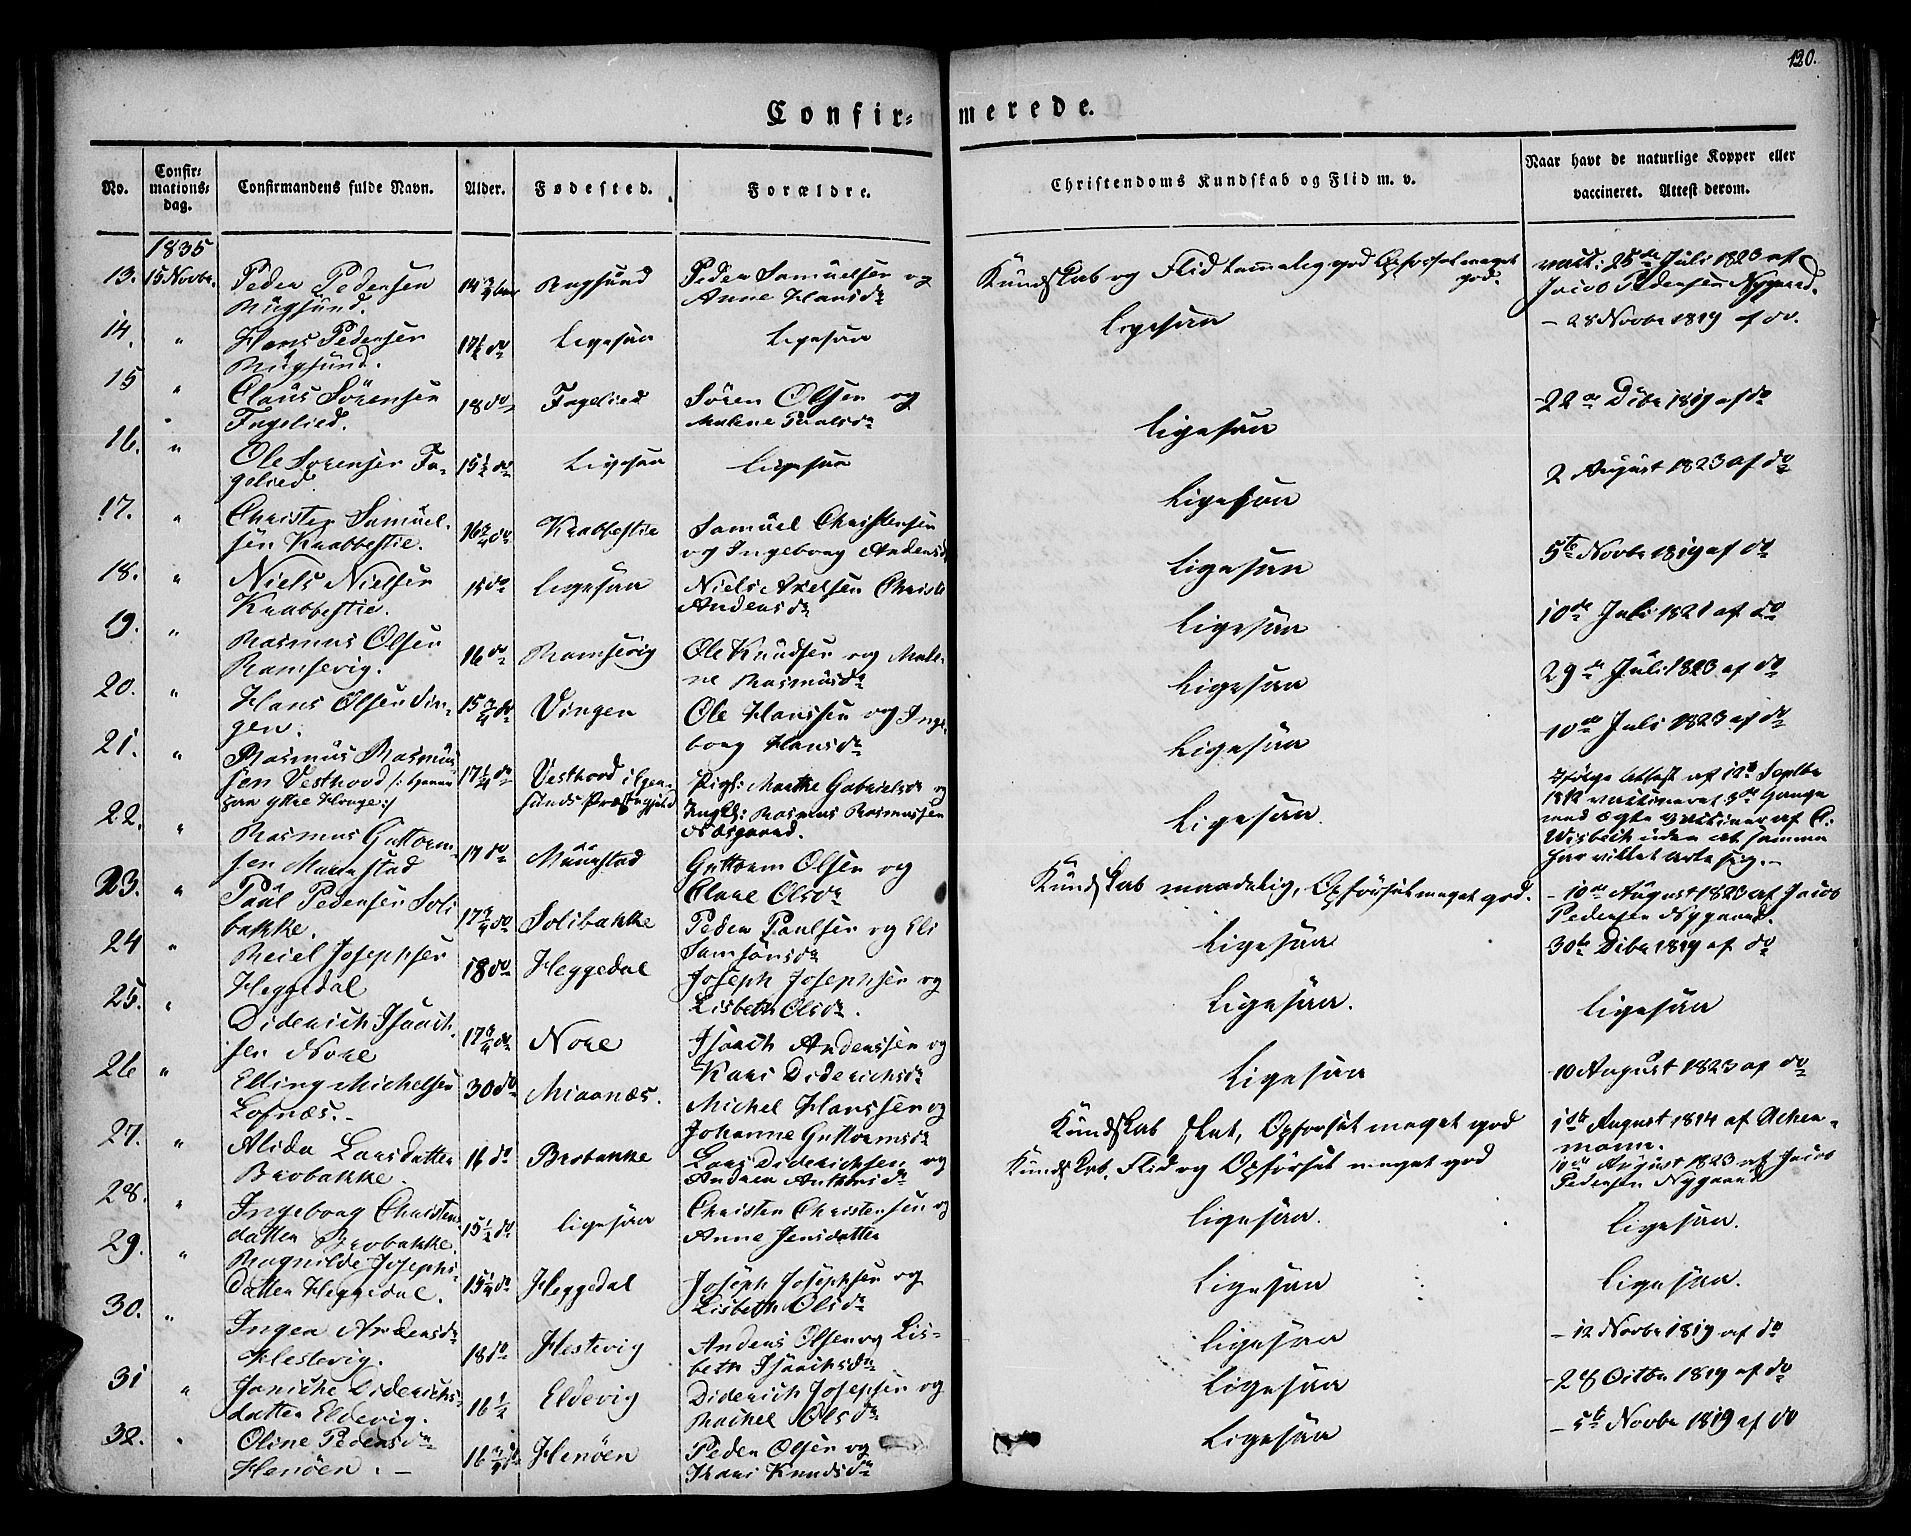 120.
Confir= merede.
No.
Confir=
mations=
dag.
Confirmandens fulde Navn.
Alder.
Fødested.
Forældre.
Christendoms Kundskab og Flid m. v.
Naar havt de naturlige Kopper eller
vaccineret. Attest derom.
1835
13. 15 Novbr. Peder Pedersen
Rugsund. 14 3/4 Rugsund Peder Samuelsen og
Anne Hansdr Kundskab og Flid temmelig god Opførsel meget
god. vacc. 25de Juli 1823 af
Jacob Pedersen Nygaard.
14. " Hans Pedersen
Rugsund. 17 1/4 do Ligesaa Ligesaa Ligesaa - 28 Novbr 1819 af do.
15 " Claus Sörensen
Fagelied. 18 do Fagelied Sören Olsen og
Malene Paalsdr Ligesaa 22de Dcbr 1819 af do
16. " Ole Sörensen Fa-
gelied 15 1/2 do Ligesaa Ligesaa Ligesaa 2 August 1823 af do
17. " Christen Samuel-
sen Krabbestie. 16 3/4 do Krabbestie Samuel Christensen
og Ingeborg Andersd Ligesaa 5te Novbr 1819 af do
18. " Niels Nielsen
Krabbestie. 15 do Ligesaa Niels Axelsen
Andersdr Ligesaa 10de Juli 1821 af do
19. " Rasmus Olsen
Ramsevig. 16 do Ramsevig Ole Knudsen og Male-
ne Rasmusdr Ligesaa 29de Juli 1823 af do
20. " Hans Olsen Vin-
gen. 15 3/4 do Vingen Ole Hanssen og Inge-
borg Hansdr Ligesaa 10de Juli 1823 af do
21. " Rasmus Rasmus-
sen Vesthovd
ytre Houge:/ 17 1/4 do Vesthovd i Eger-
sunds Præstegjeld Pige: Marthe Gabrielsdr og
Ungk: Rasmus Rasmussen
Næsgaard. Ligesaa. Ifølge Attest af 12te Septbr
1812 vaccineret 3de Gange
med ægte Vaccine af
uden at samme
har villet arte sig.-
22. " Rasmus Guttorm-
sen Maurstad 17 do Maurstad Guttorm Olsen og
Clare Olsdr Kundskab maadelig, Opførsel meget god. - 10de August 1823 af Jacob
Pedersen Nygaard.
23. " Paul Pedersen Soli-
bakke. 17 3/4 do Solibakke Peder Paulsen og Eli
Samsonsdr Ligesaa 30te Dcbr 1819 af do
24 " Reiel Josephsen
Heggedal 18 do Heggedal Joseph Josephsen og
Lisbeth Olsdr. Ligesaa. Ligesaa
25. " Diderich Isaach-
sen Nore 17 3/4 do Nore Isaach Anderssen og
Kari Diderichsdr Ligesaa 10 August 1823 af do
26 " Elling Michelsen
Lofnæs.- 30 do Miaanæs. Michel Hanssen og
Johanne Guttormsdr Kundskab slet, Opførsel meget god August 1814 af Achen-
27. " Alida Larsdatter
Brobakke. 16 do Brobakke Lars Diderichsen og
Kundskab. Flid og Opførsel meget god 10de August 1823 af Jacob
Pedersen Nygaard
28. " Ingeborg Christens-
datter Brobakke. 15 1/2 do Ligesaa Christen Christensen og
Anne Jensdatter Ligesaa. Ligesaa.
29. " Ragnilde Josephs-
datter Heggedal. 15 1/4 do Heggedal Joseph Josephsen og
Lisbeth Olsdr Ligesaa Ligesaa.
30. " Inger Andersdr
Hestevig. 18 do Hestevig Anders Olsen og Lis-
beth Isaachsdr Ligesaa - 12 Novbr 1819 af do
31 " Janiche Diderichs-
datter Eldevig. 16 1/2 Eldevig Diderich Josephsen og
Rachel Olsdr Ligesaa - 28 Octbr 1819 af do
32. " Oline Pedersdr
Henöen. - 16 3/4 do Henöen Peder Olsen og
Knudsdr Ligesaa - 5te Novbr 1819 af do